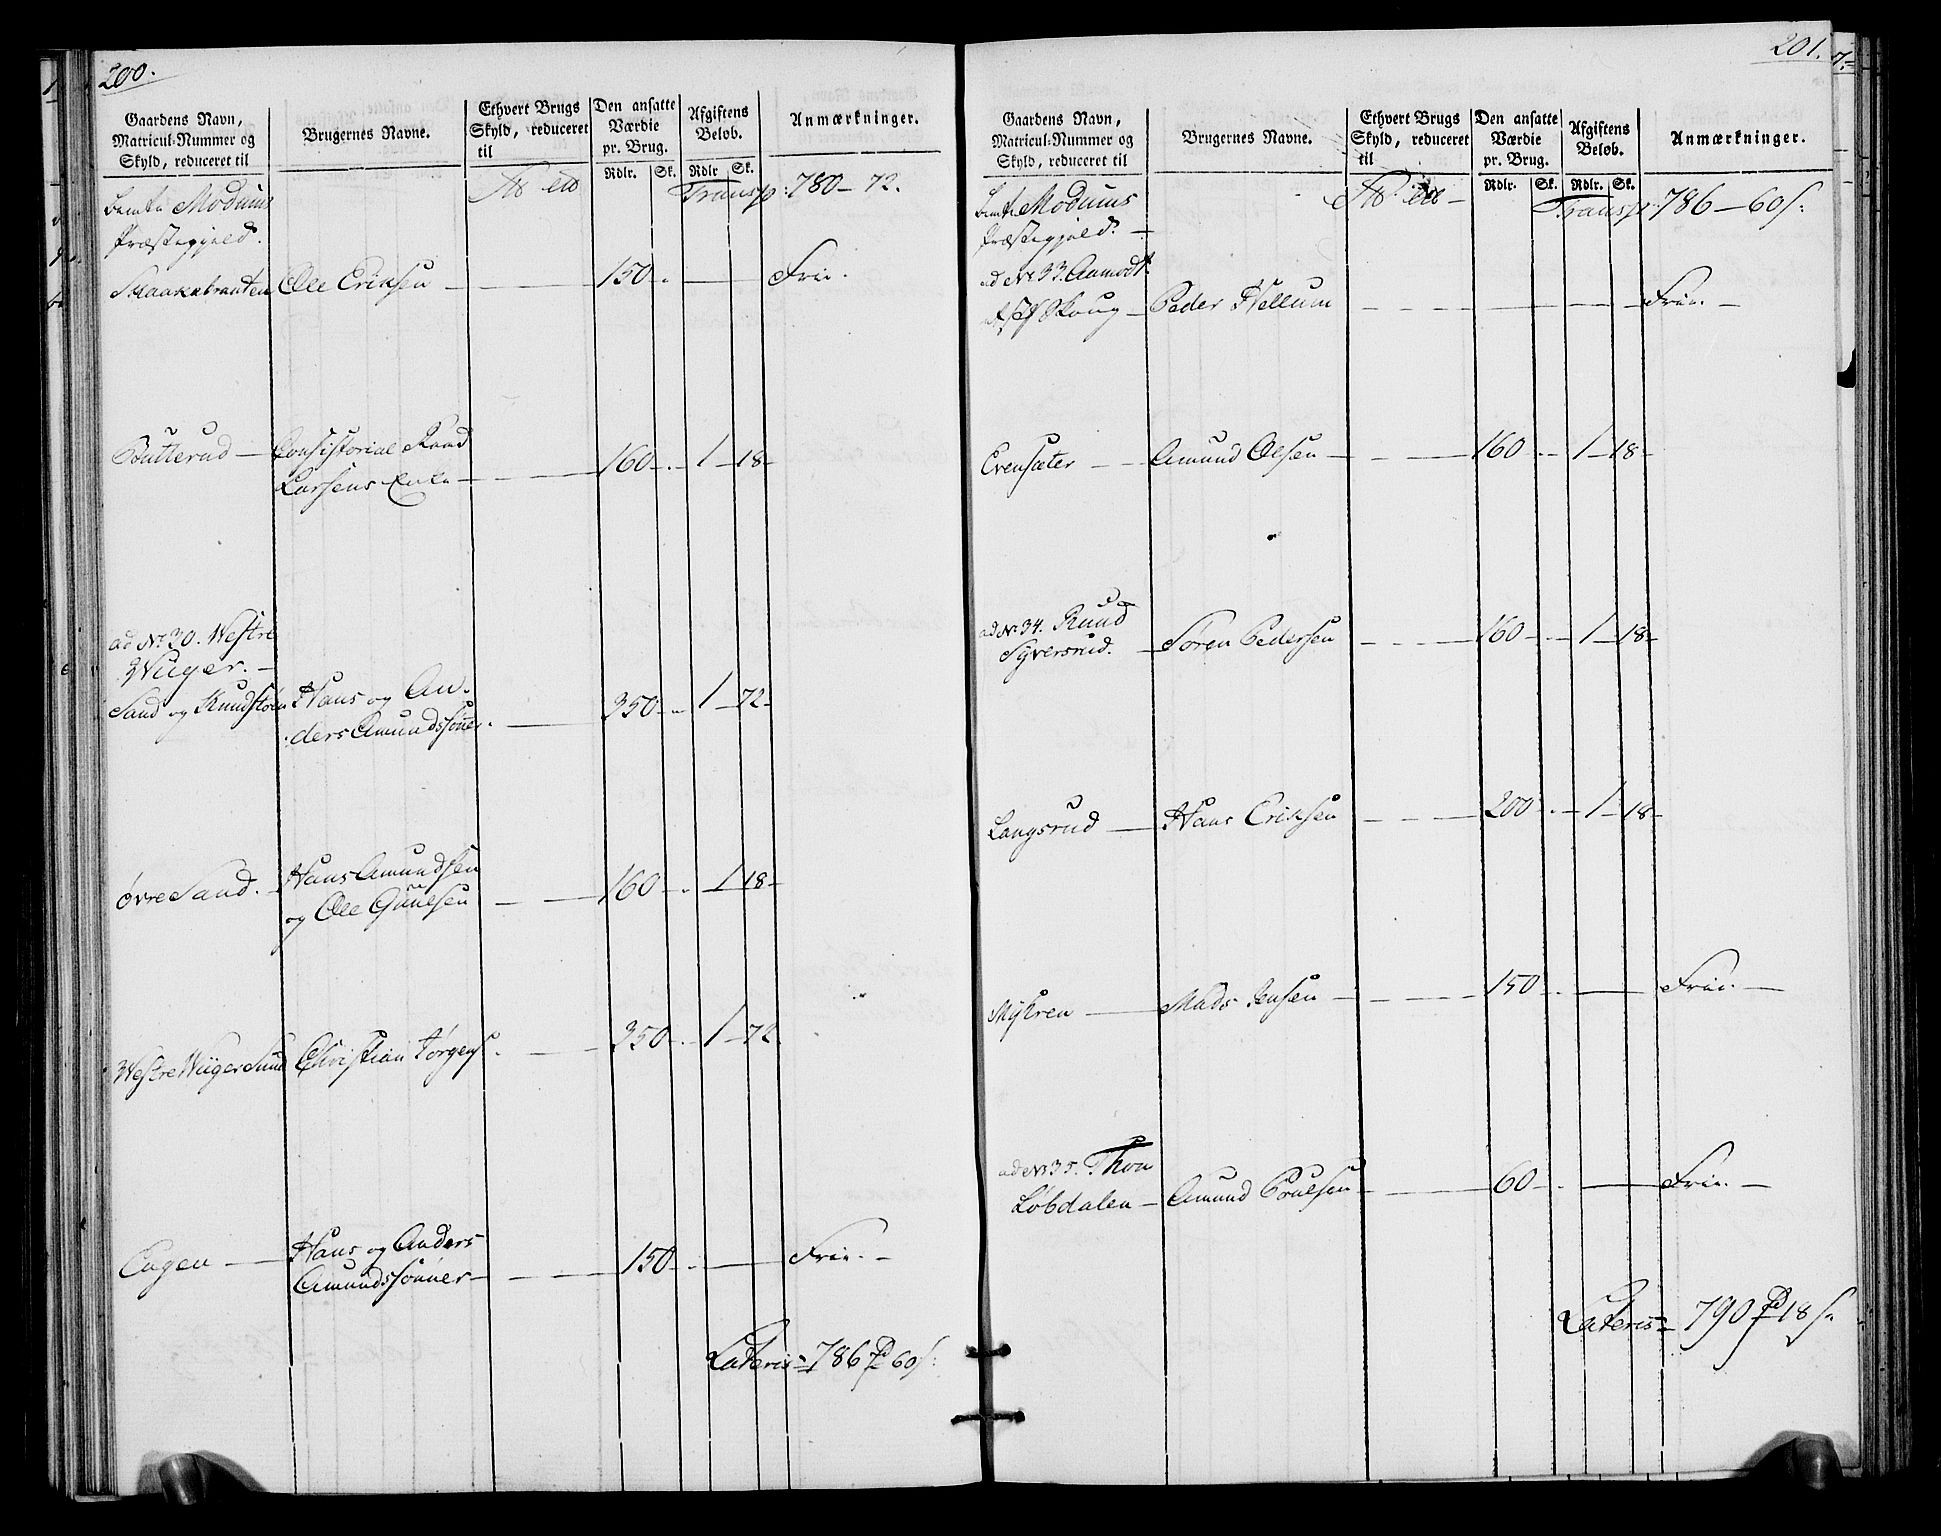 200.
Gaardens Navn, Matricul-Nummer og Skyld, reduceret til
Brugernes Navne.
Ethvert Brugs Skyld, reduceret til
Den ansatte Værdie pr. Brug. Rdlr. Sk.
Afgiftens Beløb. Rdlr Sk.
Anmærkninger.
Modums Transp: 780 - 72.
Præstegjeld.
Skaarebraaten Ole Eriksen 150 - Frie.
Butterud - Consistorial Raad
Larsens Enke - 160 - 1 - 18 -
ad No 30. Westre
Wiiger. -
Sand og Hans og An-
ders Amundssønner. 350 - 1 - 72 -
øvre Sand. - Hans Amundsen
og Ole Gulsen - 160 - 1 18 -
Westre Wiiger Sund Christian Jørgens. 350 - 1 - 72
Engen - Hans og Anders
Amundssønner - 150 - Frie. -
Lateris - 786 60 s:
201.
Gaardens Navn, Matricul-Nummer og Skyld, reduceret til
Brugernes Navne.
Ethvert Brugs Skyld, reduceret til
Den ansatte Værdie pr. Brug. Rdlr. Sk.
Afgiftens Beløb. Rdlr. Sk.
Anmærkninger.
Modums Transp: 786 - 60 s:
Præstegjeld. -
ad No 33. Aamodt
Skoug - Peder Hellum - Frie. -
Evensæter - Amund Olsen - 160 - 1 - 18 -
ad No 34. Ruud
Syversrud. - Søren Pedersen - 160 - 1 - 18 -
Langsrud - Hans Eriksen - 200 - 1 - 18 -
Myhren - Mads Jensen - 150 - Frie. -
ad No 35. Thon
Løbdalen - Amund Poulsen - 60 - Frie. -
Lateris - 790 18 s.